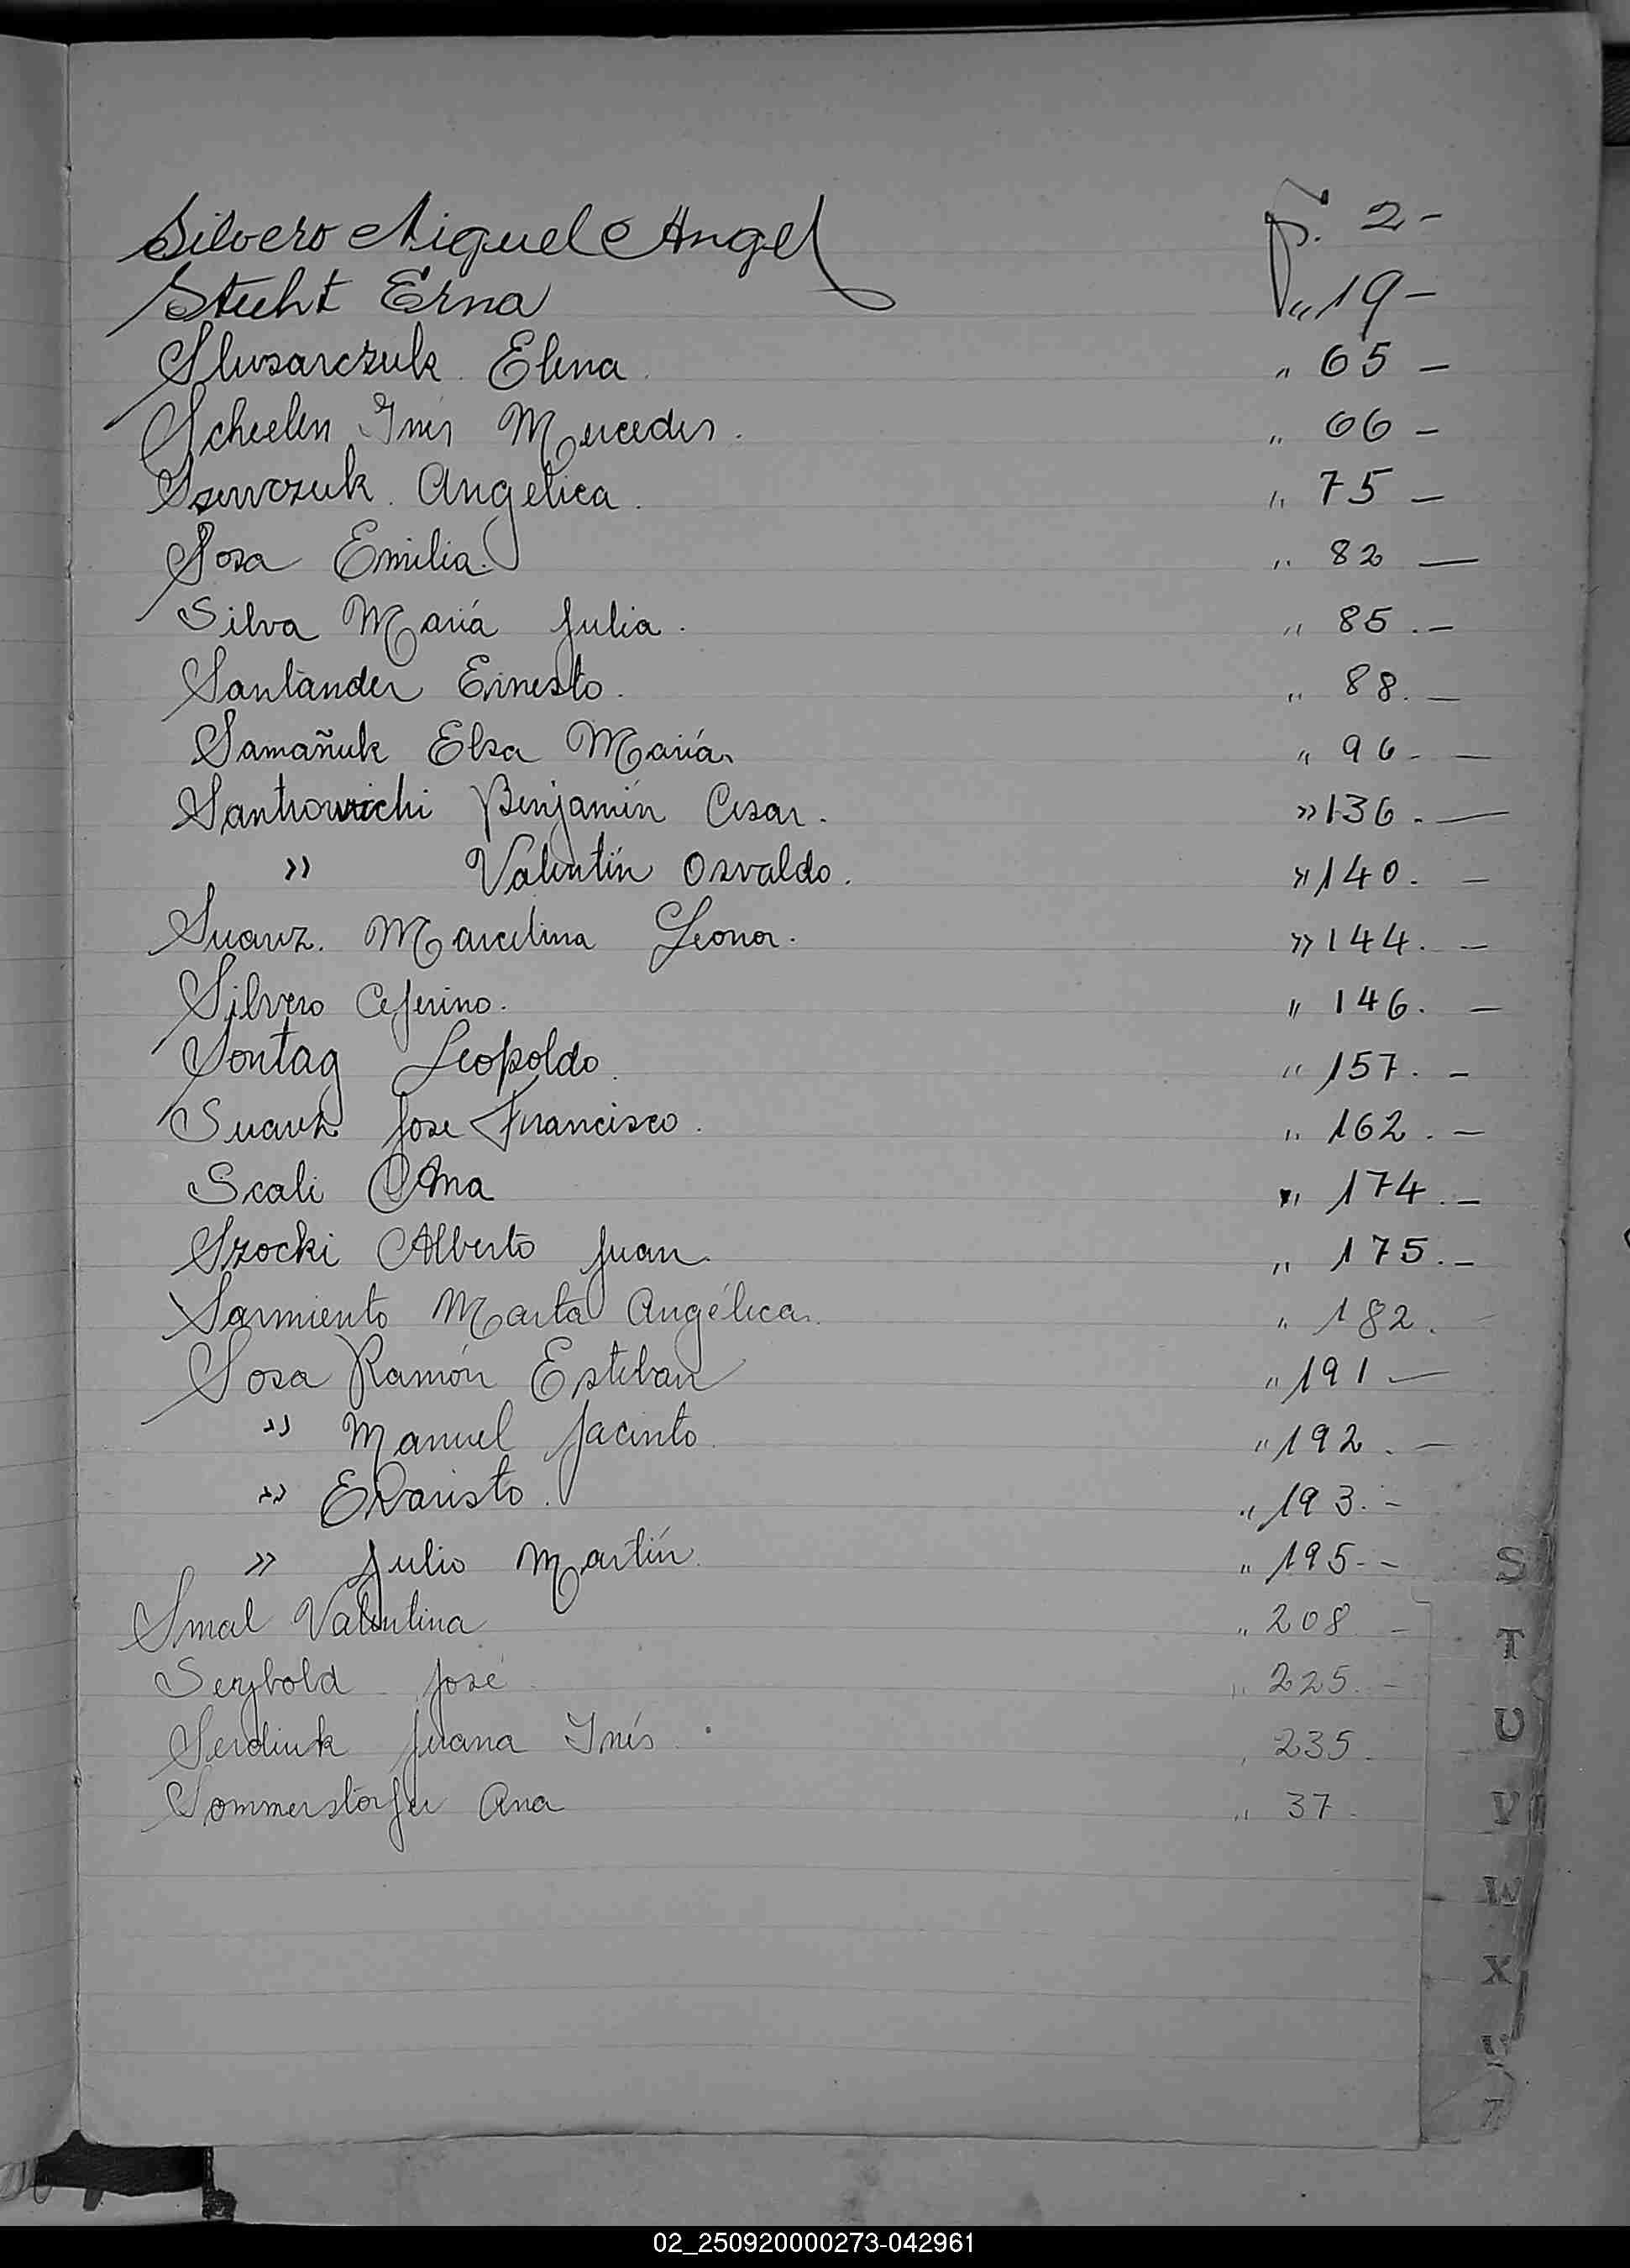 Silvero Miguel Angel f. 2-
Stuht Erna " 19-
Slusarczuk Elena. " 65 -
Scheelen Inés Mercedes. " 66 -
Szewczuk. Angelica. " 75 -
Sosa Emilia. " 82 -
Silva María Julia. " 85.-
Santander Ernesto. " 88.-
Samañuk Elsa María. " 96.-
Benjamín Cesar. " 136.-
" Valentín Osvaldo. " 140.-
Suarez. Marcelina Leonor. " 144.-
Silvero Ceferino. " 146.-
Sontag Leopoldo. " 157.-
Suarez Jose Francisco. " 162.-
Scali Ana " 174.-
Szocki Alberto Juan. " 175.-
Sarmiento Marta Angélica. " 182.
Sosa Ramón Esteban " 191-
" Manuel Jacinto. " 192.-
" Evaristo. " 193.-
" Julio Martín. " 195.-
Smal Valentina " 208 -
Seybold José " 225.-
Serdiuk Juana Inés. " 235.
Sommerstorfer Ana " 37.
S
T
U
V
W
X
Y
Z
02_250920000273-042961